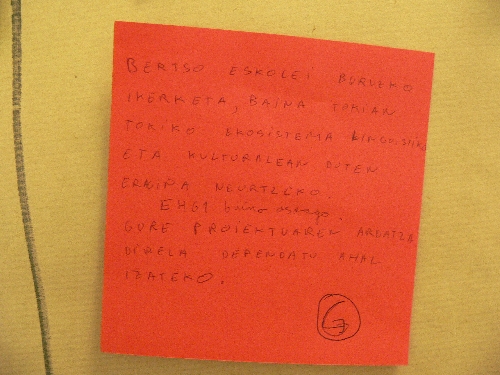 BERTSO ESKOLEI BURUZKO
IKERKETA, BAINA TOKIAN
TOKIKO EKOSISTEMA LINGUISTIKO
ETA KULTURALEAN DUTEN
ERAGINA NEURTZEKO.
EHGI baino osoago.
GURE PROIEKTUAREN ARDATZA
DIRELA DEFENDATU AHAL
IZATEKO.